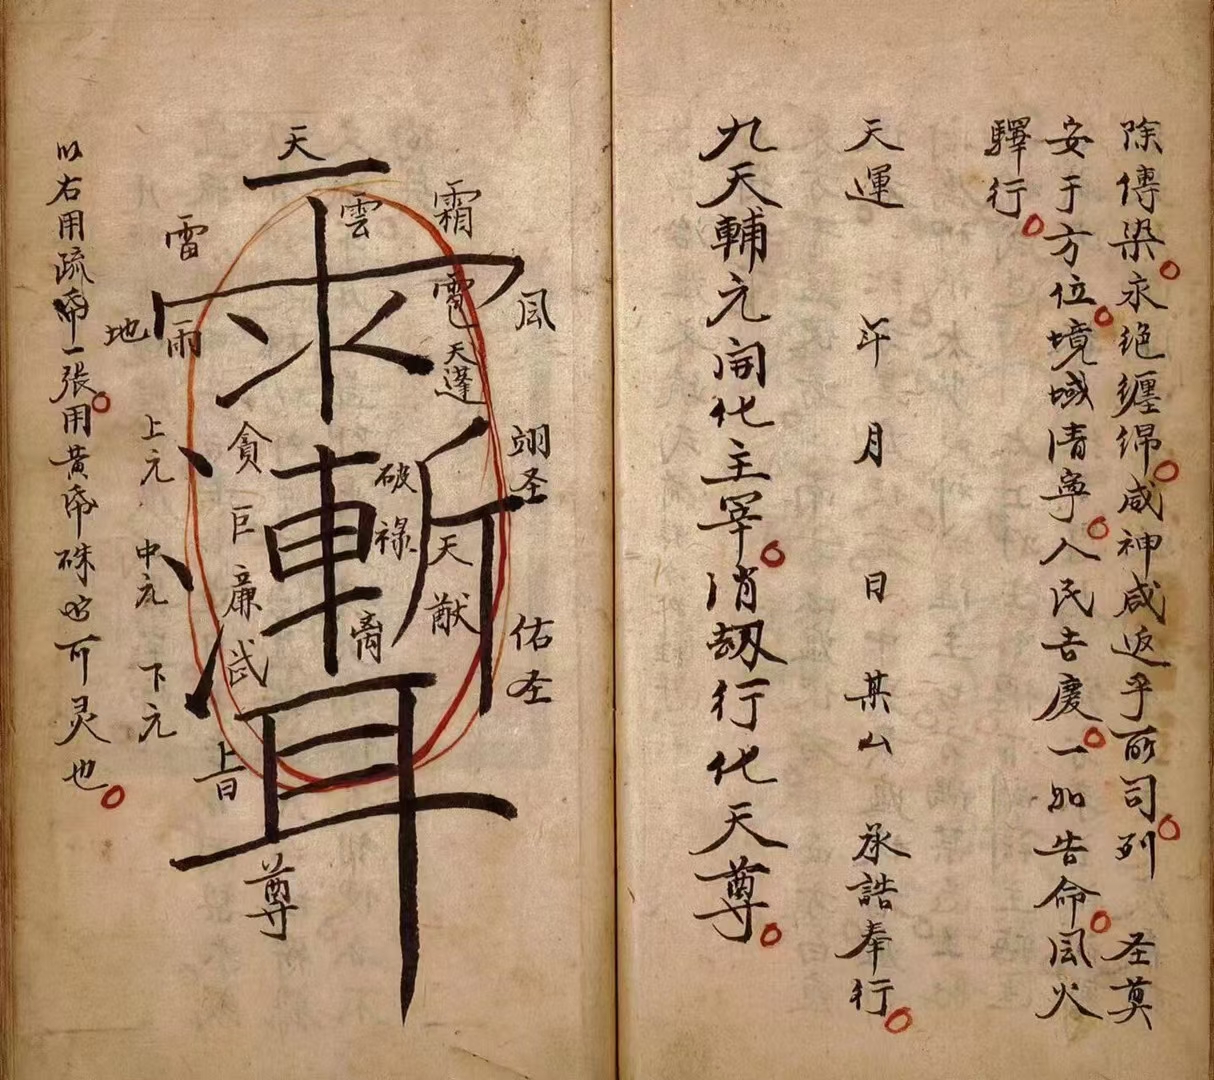 除傳染永絶纏綿咸神咸返乎所司列 圣奠
安于方位境域清寧人民吉慶一如告命风火
驛行
天運 年 月 日 某厶 承誥奉行
九天輔元開化主宰消劫行化天尊
天
雲
霜
雹
风
雷
雨
地
天蓬
翊圣
天猷
佑圣
破
禄
贪
巨
廉
武
上元
中元
下元
斬
耳
尊
以右用疏帋一張用黄帋硃 可灵也